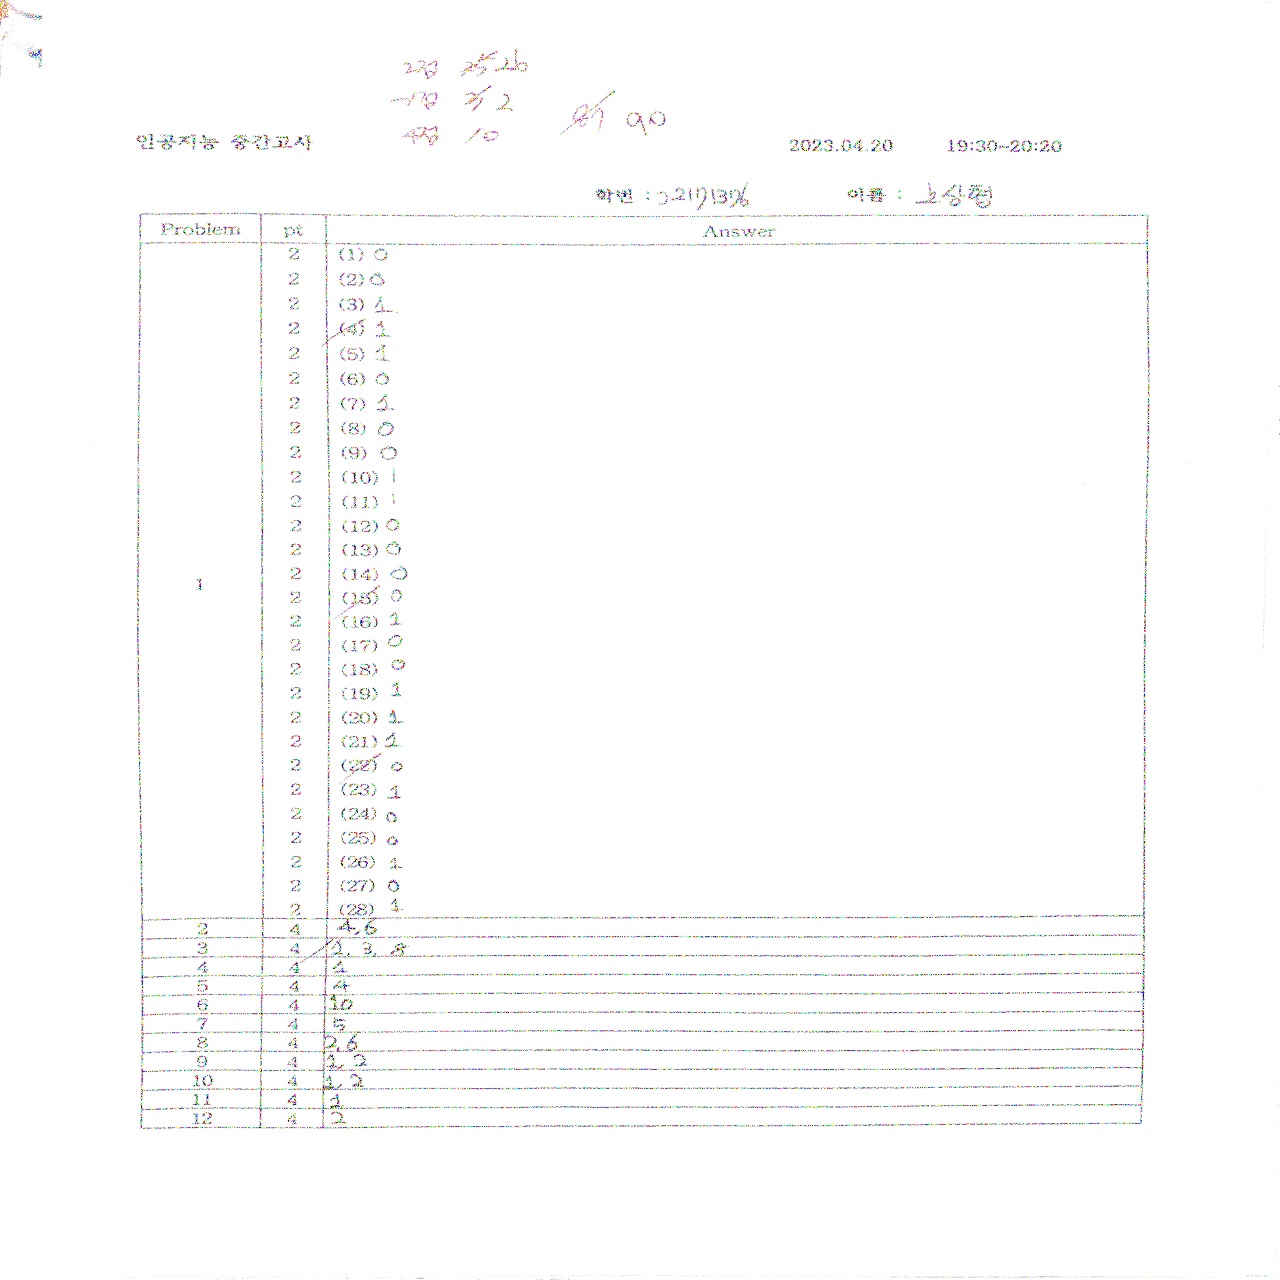 2점 25 26
-1점 3 2
4점 10
87 90
인공지능 중간고사 2023.04.20 19:30~20:20
학번 : 이름 :
Problem pt Answer
2 (1) 0
2 (2) 0
2 (3) 1
2 (4) 1
2 (5) 1
2 (6) 0
2 (7) 1
2 (8) 0
2 (9) 0
2 (10) 1
2 (11) 1
2 (12) 0
2 (13) 0
2 (14) 0
1
2 (15) 0
2 (16) 1
2 (17) 0
2 (18) 0
2 (19) 1
2 (20) 1
2 (21) 1
2 (22) 0
2 (23) 1
2 (24) 0
2 (25) 0
2 (26) 1
2 (27) 0
2 (28) 1
2 4 4,6
3 4 1, 3, 8
4 4 1
5 4 4
6 4 10
7 4 5
8 4 2,6
9 4 1, 2
10 4 1, 2
11 4 1
12 4 2